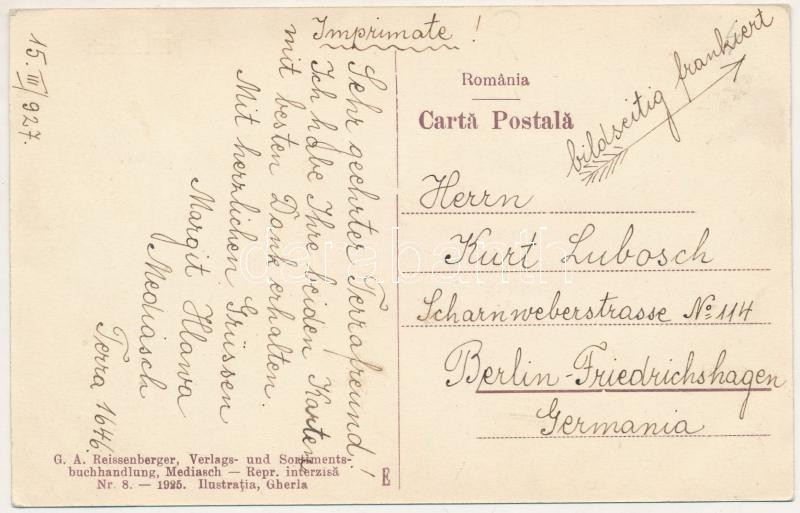 Imprimate!
15. III/927.
Sehr geehrter Terrafreund!
Ich habe Ihre beiden Karten
mit besten Dank erhalten.
Mit herzlichen Grüssen
Margit Hlawa
Mediasch
Terra 1646.
România
Cartă Postală
bildseitig frankiert
Herrn
Kurt Lubosch
Scharnweberstrasse № 114
Berlin-Friedrichshagen
Germania
G. A. Reissenberger, Verlags- und Sortiments-
buchhandlung, Mediasch — Repr. interzisă
Nr. 8. — 1925. Ilustrația, Gherla
E
darabanth